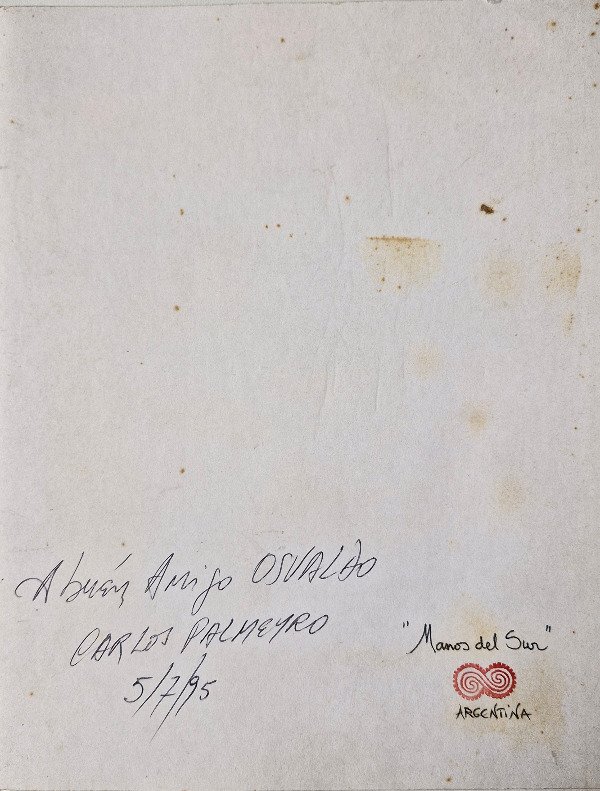 A buen Amigo OSVALDO
CARLOS PALMEYRO
5/7/95
"Manos del Sur"
ARGENTINA